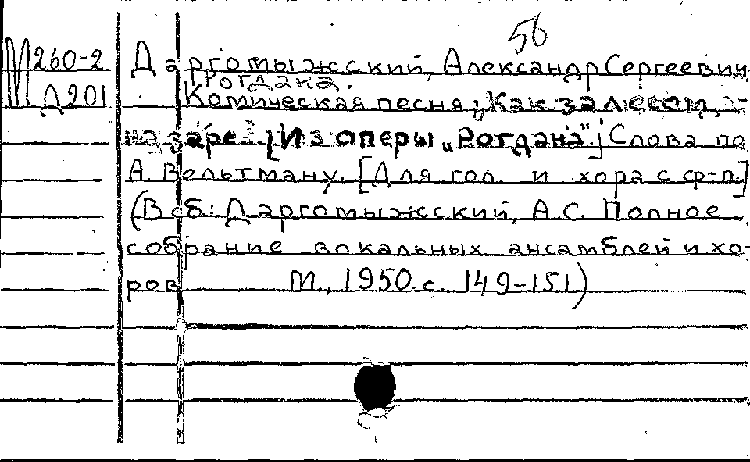 56
М260-2 Даргомыжский, Александр Сергеевич
Рогдана.
Д201 Комическая песня „Как за лесом,
на заре". [Из оперы „Рогдана".] Слова по
А. Вельтману. [Для гол. и хора с ср-п.]
(В сб: Даргомыжский, А.С. Полное
собрание вокальных ансамблей и хо-
ров М., 1950. с. 149-151)